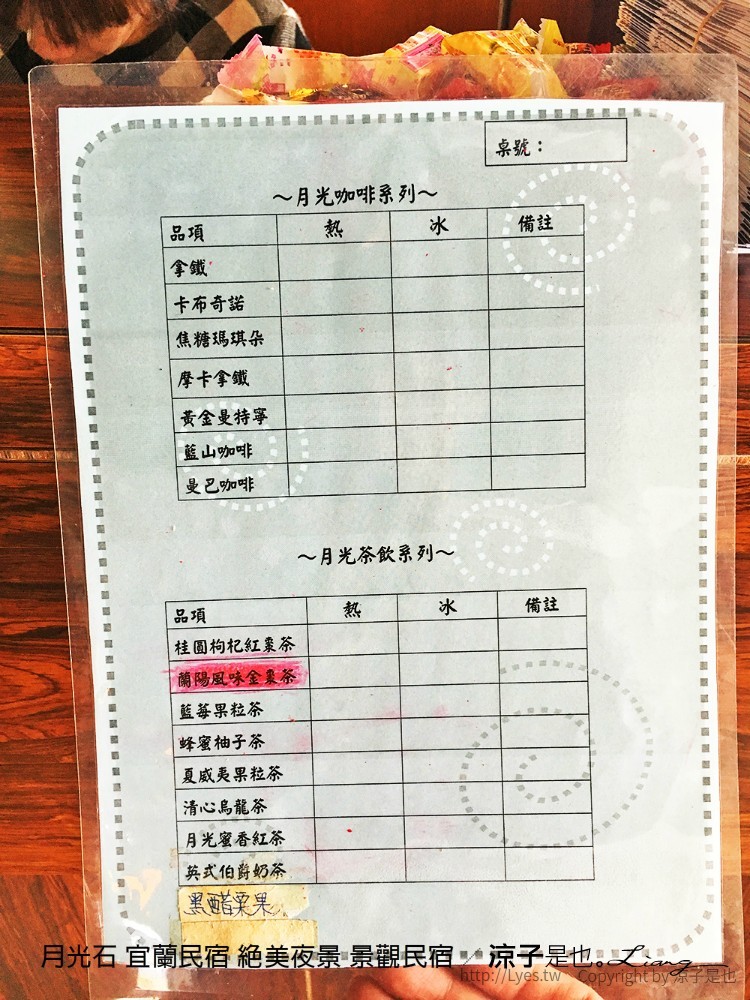 桌號：
～月光咖啡系列～
品項 熱 冰 備註
拿鐵
卡布奇諾
焦糖瑪琪朵
摩卡拿鐵
黃金曼特寧
藍山咖啡
曼巴咖啡
～月光茶飲系列～
品項 熱 冰 備註
桂圓枸杞紅棗茶
蘭陽風味金棗茶
藍莓果粒茶
蜂蜜柚子茶
夏威夷果粒茶
清心烏龍茶
月光蜜香紅茶
英式伯爵奶茶
黑醋栗果
月光石 宜蘭民宿 絕美夜景 景觀民宿 / 涼子是也。Liang
http://Lyes.tw Copyright by 涼子是也